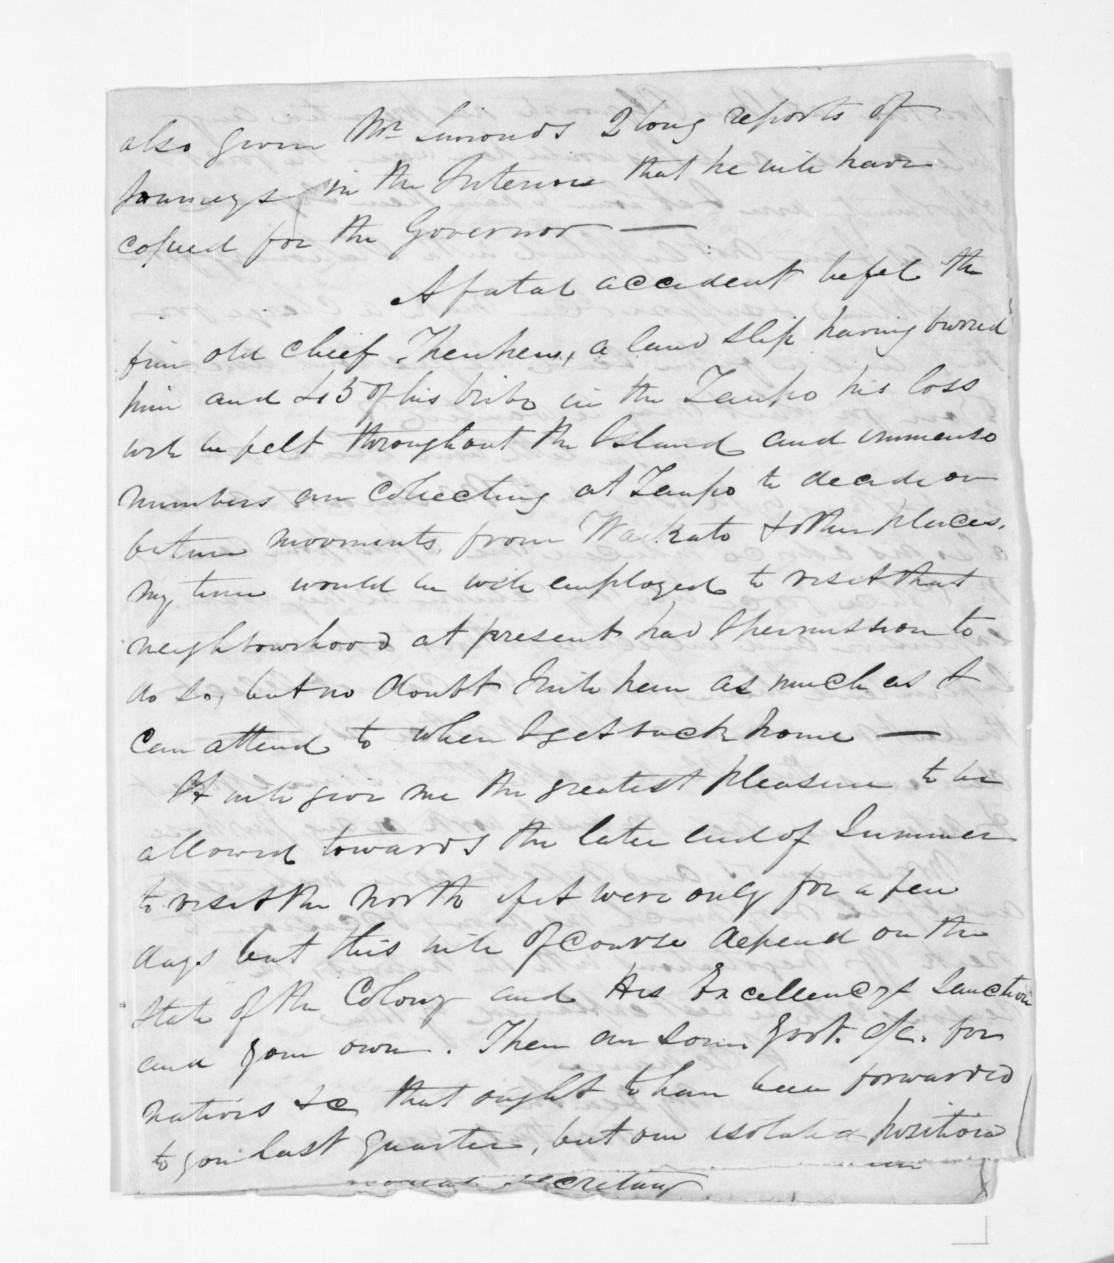 also given Mr Simonds 2 long reports of
Journeys in the Interior that he will have
copied for the Governor —
A fatal accident befel the
fine old chief Theuheu, a land slip having buried
him and 45 of his tribe in the Taupo his loss
will be felt throughout the Island and immense
numbers are collecting at Taupo to decide on
future movements, from Waikato & other places.
my time would be well employed to visit that
neighbourhood at present had I permission to
do so, but no doubt I will hear as much as I
can attend to when I get back home —
It will give me the greatest pleasure to be
allowed towards the later end of Summer
to visit the North if it were only for a few
days but this will of course depend on the
State of the Colony and His Excellencys Sanction
and your own. There are some Govt. a/c. for
natives &c that ought to have been forwarded
to you last quarter, but our isolated position
Secretary